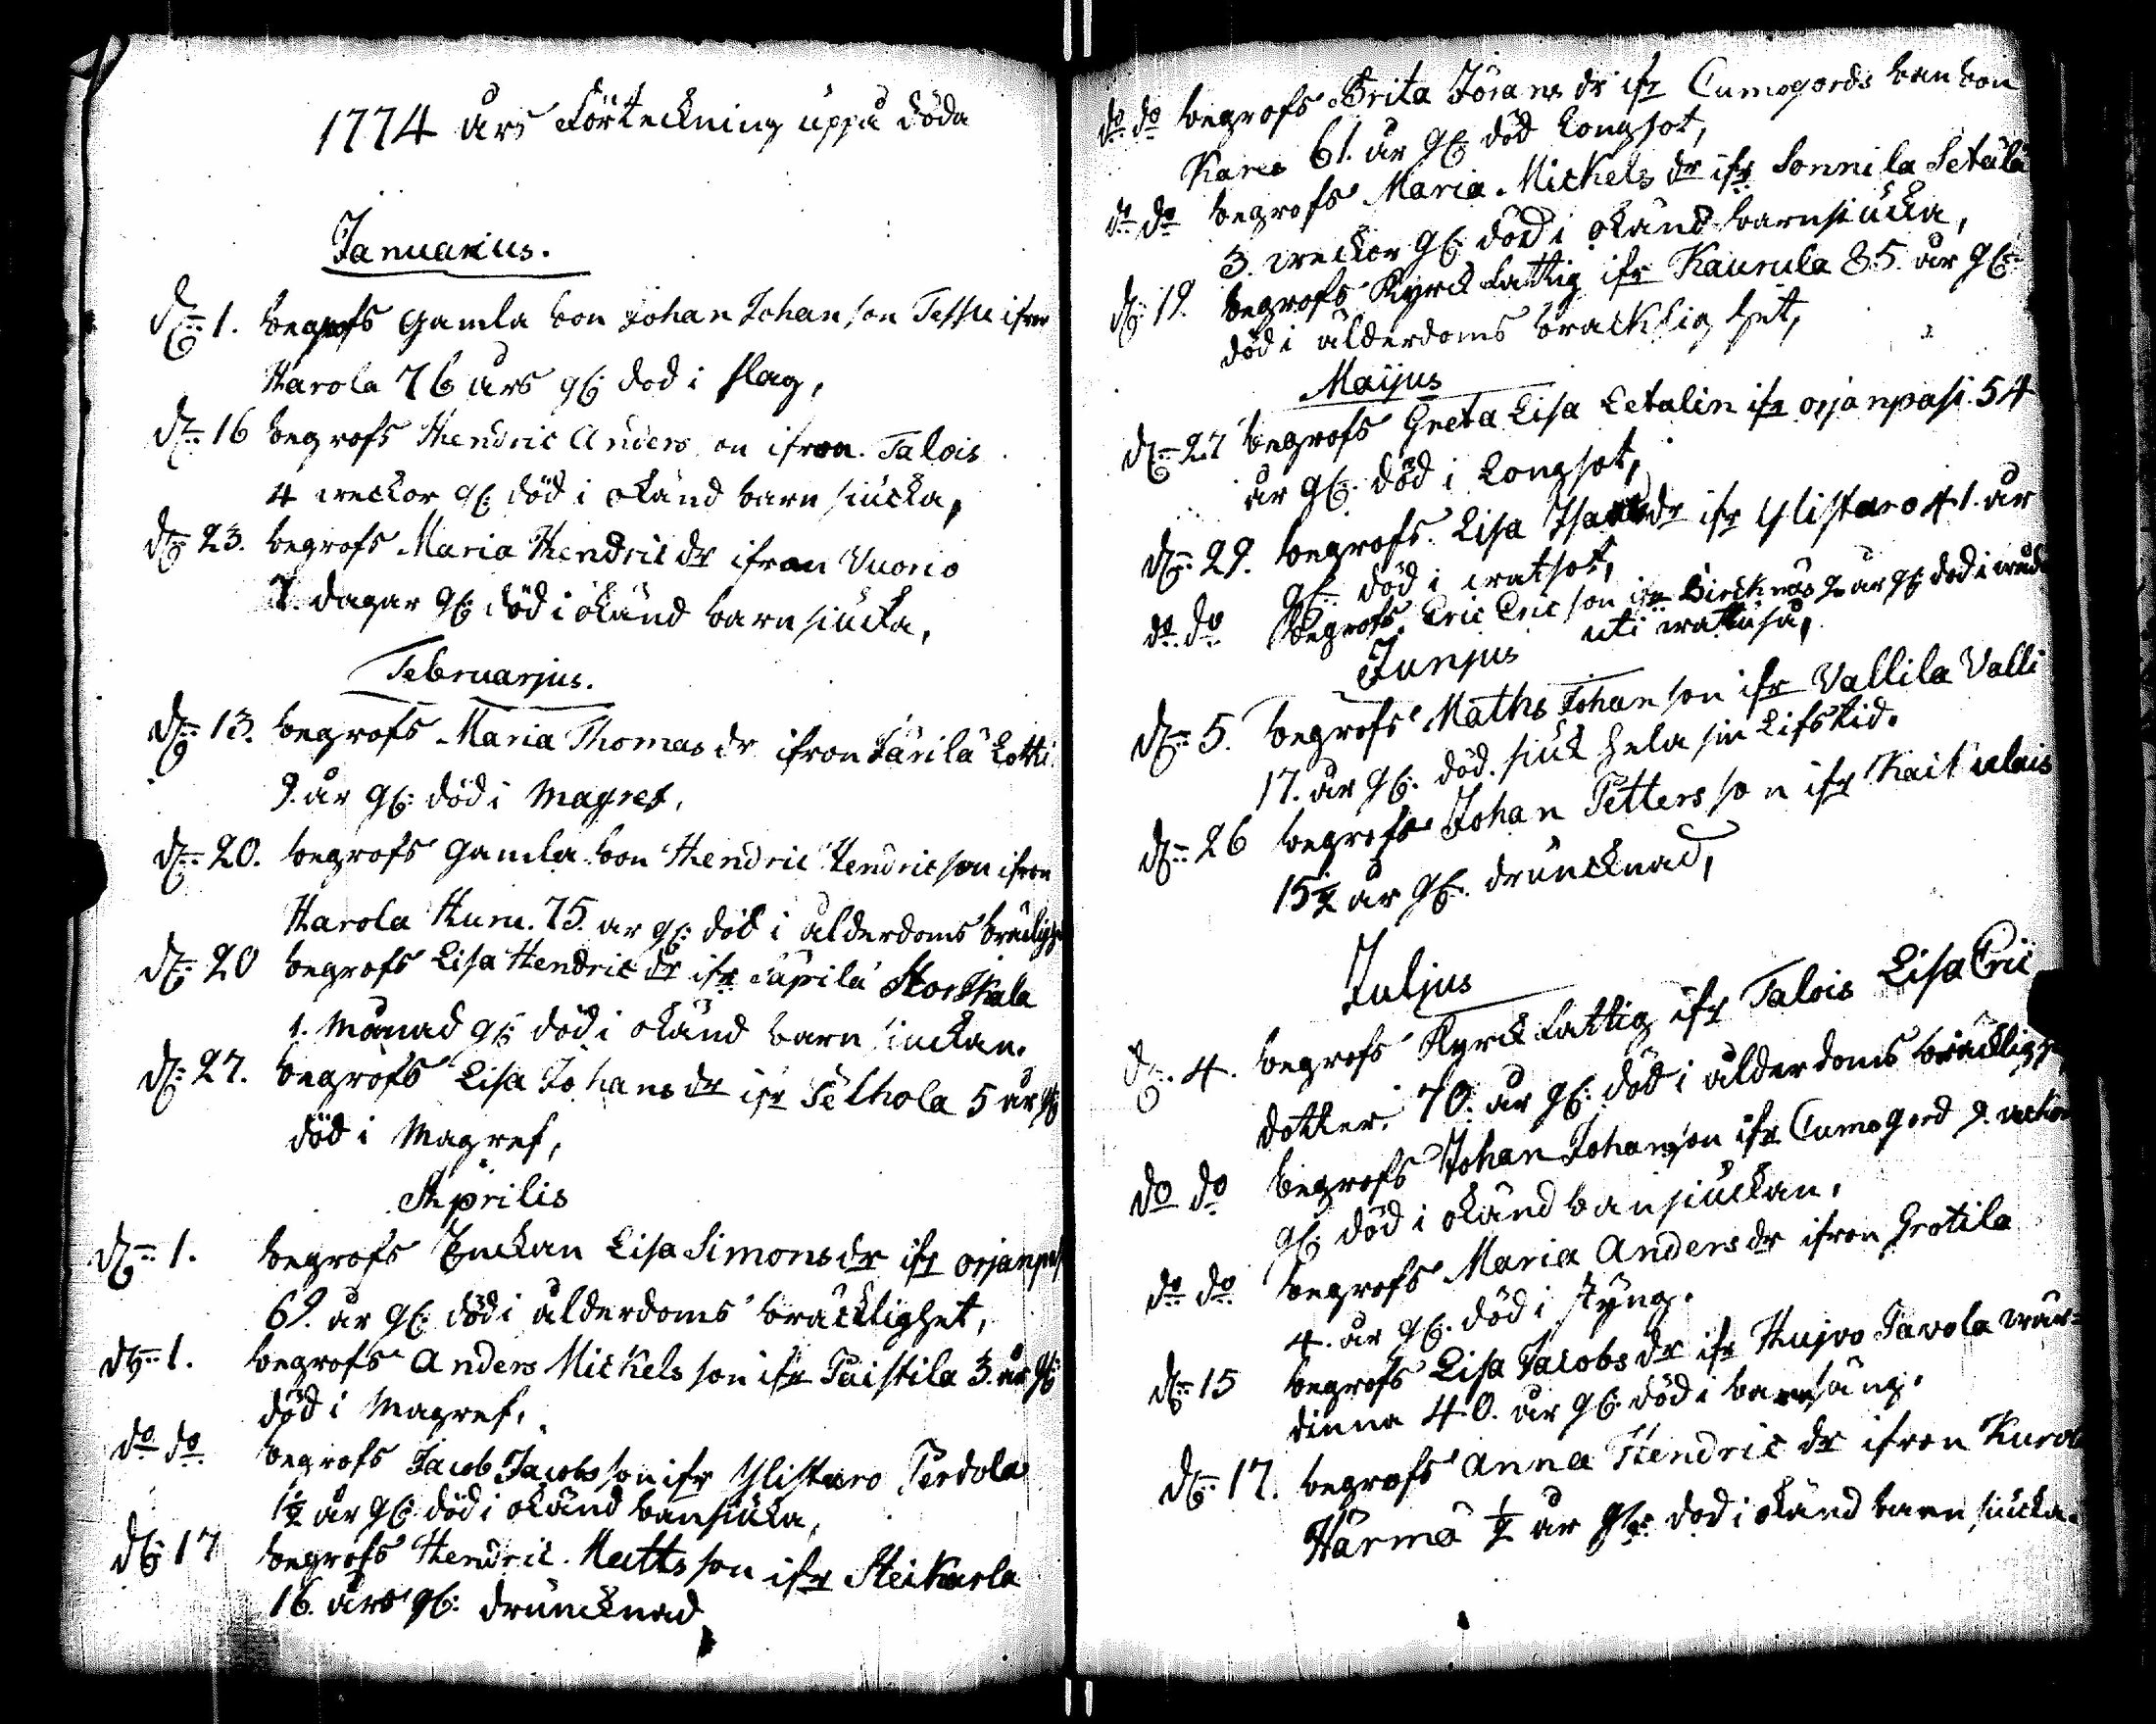 1774 års Förteckning uppå döda
Januarius.
dn 1. begrofs gamla bon Johan Johanson Tessu ifron
Harola 76 års gl: dod i slag,
dn 16 begrofs Hendric Anders on ifron Talois
4 weckor gl: död i okänd barn siucka,
dn 23. begrofs Maria Hendric dr ifron Vuorio
7. dagar gl: död i okänd barn siucka,
Februarjus.
dn 13. begrofs Maria Thomas dr ifron Särilä Lotti
9. år gl: död i Magref,
dn 20. begrofs gamla bon Hendric Hendricson ifron
Harola Huru. 75. ar gl: död i ålderdoms bräcligh
dn 20 begrofs Lisa Hendric dr ifr Säpilä Storkala
1. Månad gl: död i okänd barn siuckan.
dn 27. begrofs Lisa Johans dr ifr Pelhola 5 år gl:
död i Magref,
Aprilis
dn 1. begrofs Enckan Lisa Simons dr ifr orjanpas
69. år gl: död i ålderdoms bräcklighet,
dn 1. begrofs Anders Mickels son ifr Paistila 3. år gl:
död i Magref,
do do begrofs Jacob Jacobs son ifr Ylistaro Perdola
1½ år gl: död i okänd bansiucka,
dn 17 begrofs Hendric Matts son ifr Steikarla
16. års gl: druncknad
do do begrofs Brita Jörans dr ifr Cumogords ban bon
Kares 61. år gl: död Longsot,
do do begrofs Maria Mickels dr ifr Sonnila Setälä
3. weckor gl: död i okänd barnsiucka,
dn 19. begrofs Kyrck fattig ifr Kaurula 85. år gl:
död i ålderdoms bräcklig het,
Maijus
dn 27 begrofs Greta Lisa Letalin ifr orjanpasi 54
år gl: död i Longsot,
dn 29. begrofs Lisa Isacs dr ifr Ylistaro 41. år
gl: död i watsot,
do do begrofs Eric Ericson ifr Bircknäs år gl: död i
uti
Junjus
dn 5. begrofs Maths Johan son ifr Vallila Valli
17. år gl: död. siuck hela sin Lifstid.
dn 26 begrofs Johan Petters son ifr Kaitulais
15½ år gl: druncknad,
Juljus
dn 4. begrofs Kyrck fattig ifr Talois Lisa Eric
dotter. 70. år gl: död i ålder doms bräckligh
do do begrofs Johan Johanson ifr Cumogord 9. weckor
gl: död i okänd ban siuckan,
do do begrofs Maria Anders dr ifron Grotila
4. år gl: död i styng.
dn 15 begrofs Lisa Jacobs dr ifr Hujvo Pavola wär=
dinna 40. år gl: död i barnsäng.
dn 17. begrofs Anna Hendric dr ifron Kurola
Härmä ½ år gl: dod i okänd barn siucka.